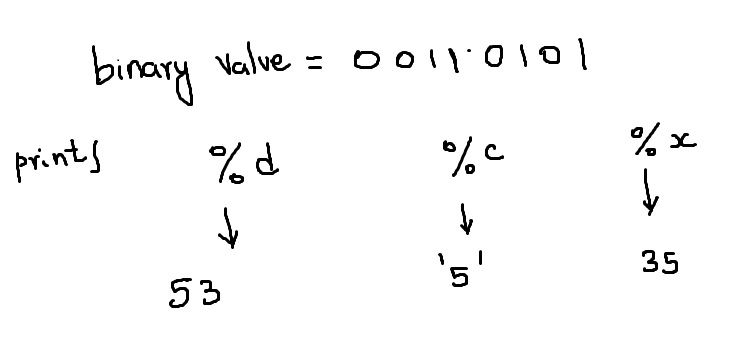 binary value = 00110101
printf %d %c %x
↓ ↓ ↓
53 '5' 35